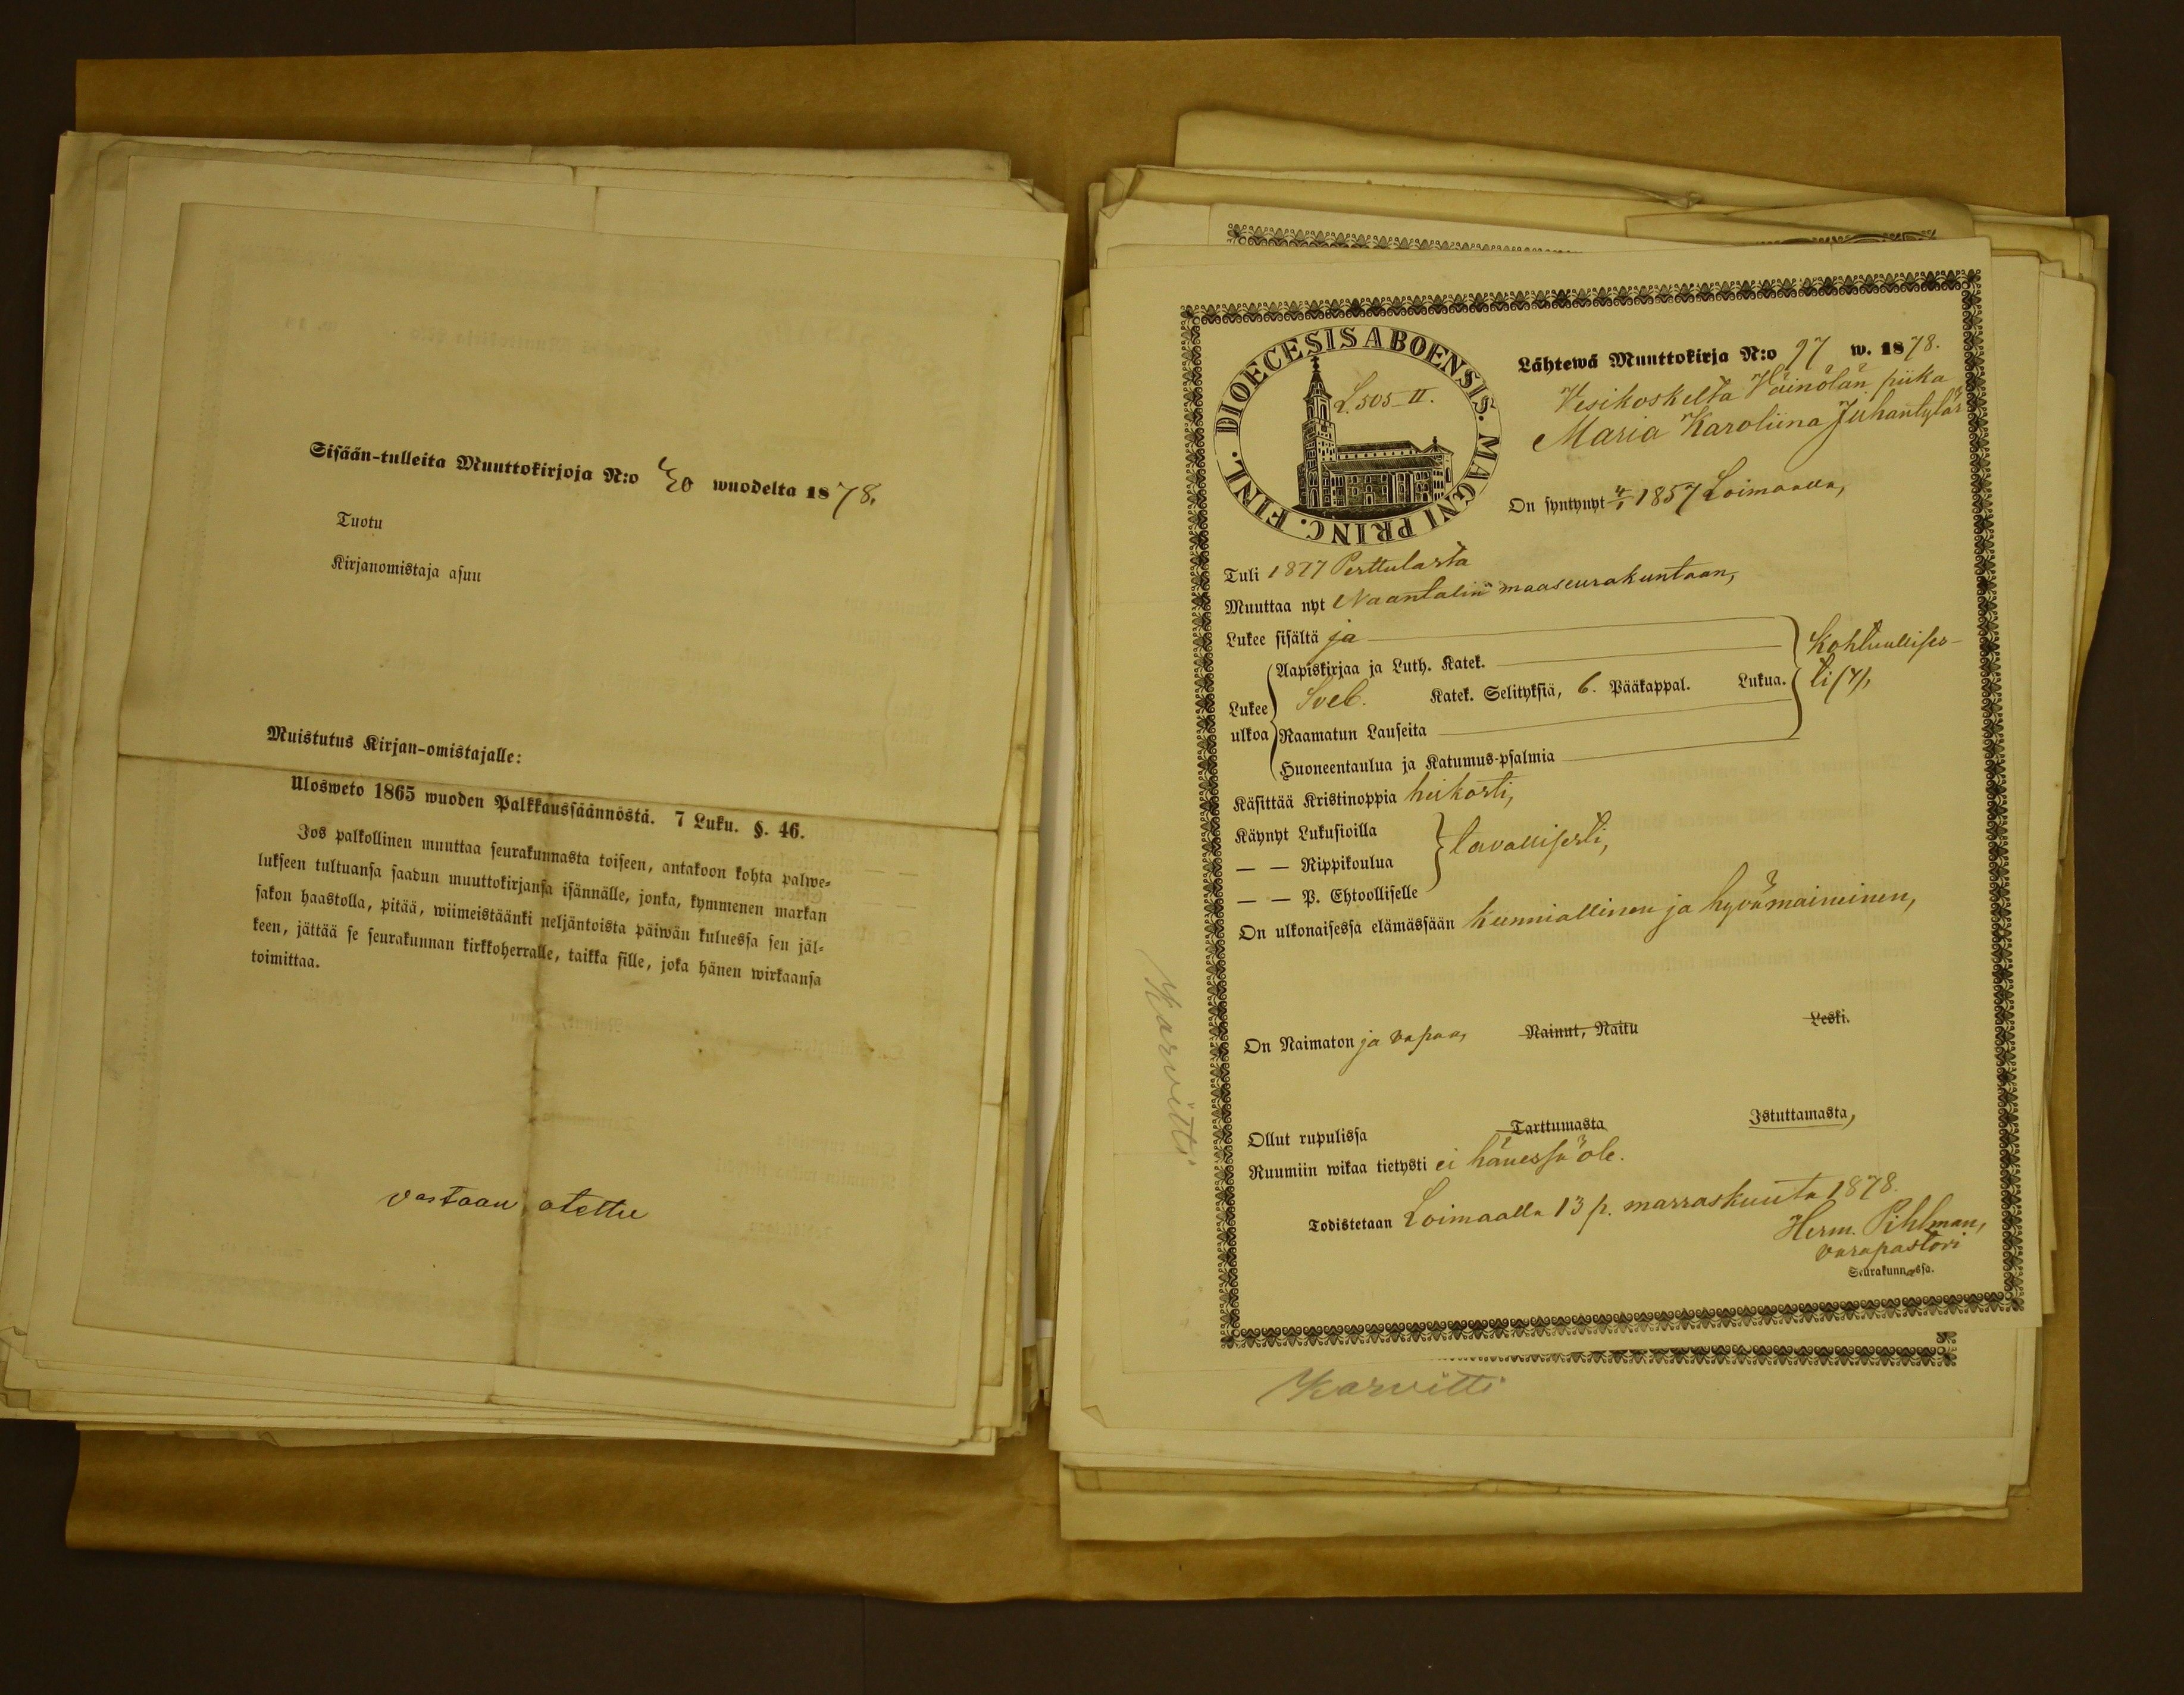 Sisään-tulleita Muuttokirjoja N:o 20 wuodelta 1878.
Tuotu
Kirjanomistaja asuu
Muistutus Kirjan-omistajalle:
Ulosweto 1865 wuoden Palkkaussäännöstä. 7 Luku. §. 46.
Jos palkollinen muuttaa seurakunnasta toiseen, antakoon kohta palwe-
lukseen tultuansa saadun muuttokirjansa isännälle, jonka, kymmenen markan
sakon haastolla, pitää, wiimeistäänki neljäntoista päiwän kuluessa sen jäl-
keen, jättää se seurakunnan kirkkoherralle, taikka sille, joka hänen wirkaansa
toimittaa.
vastaan otettu
DIOECESIS ABOENSIS. MAGNI PRINC. FINL.
L. 505 II.
Lähtewä Muuttokirja N:o 97 w. 1878.
Vesikoskelta Väinölän piika
Maria Karoliina Juhantytär
On syntynyt 4/1 1857 Loimaalla,
Tuli 1877 Perttulasta
Muuttaa nyt Naantalin maaseurakuntaan,
Lukee sisältä ja
Lukee ulkoa
Aapiskirjaa ja Luth. Katek.
Sveb. Katek. Selityksiä, 6. Pääkappal. Lukua.
Raamatun Lauseita
Huoneentaulua ja Katumus-psalmia
Kohtuullises-
ti (7),
Käsittää Kristinoppia heikosti,
Käynyt Lukusioilla
— — Rippikoulua
— — P. Ehtoolliselle
tavallisesti,
On ulkonaisessa elämässään kunniallinen ja hyvämaineinen,
On Naimaton ja vapaa, Nainut, Naitu Leski.
Ollut rupulissa Tarttumasta Istuttamasta,
Ruumiin wikaa tietysti ei hänessä ole.
Todistetaan Loimaalla 13 p. marraskuuta 1878.
Herm. Pihlman,
varapastori
Seurakunnassa.
Karvitti
Karvitti